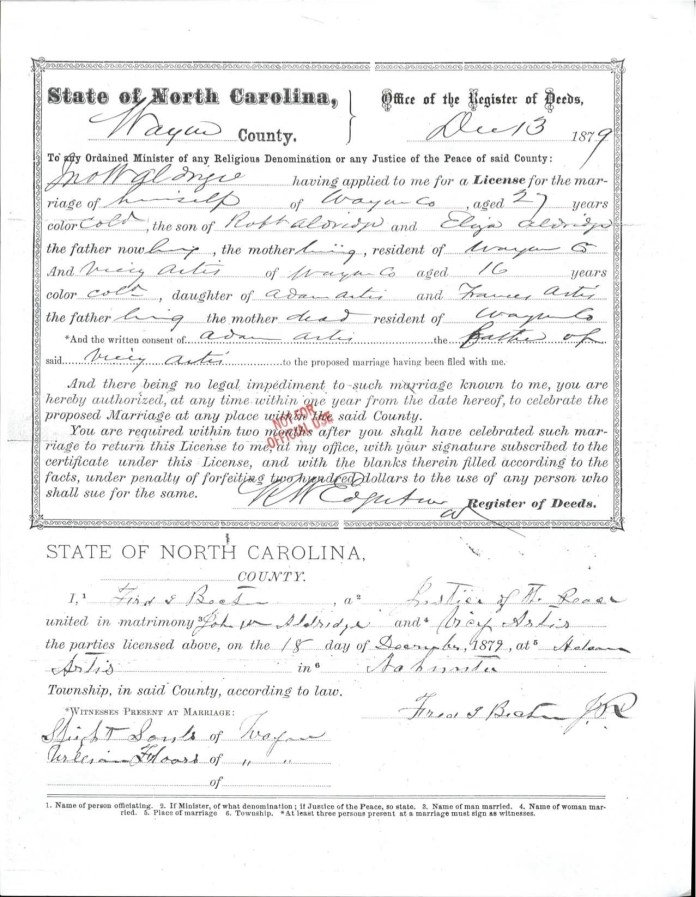 State of North Carolina,
Wayne County.
Office of the Register of Deeds,
Dec 13 1879
To any Ordained Minister of any Religious Denomination or any Justice of the Peace of said County:
Jno W Aldridge having applied to me for a License for the mar-
riage of himself of Wayne Co, aged 27 years
color Cold, the son of Robt Aldridge and Eliza Aldridge
the father now living, the mother living, resident of Wayne Co
And Vicey Artis of Wayne Co aged 16 years
color cold, daughter of Adam Artis and Frances Artis
the father living the mother dead resident of Wayne Co
*And the written consent of Adam Artis the Father of
said Vicey Artis to the proposed marriage having been filed with me.
And there being no legal impediment to such marriage known to me, you are
hereby authorized, at any time within one year from the date hereof, to celebrate the
proposed Marriage at any place within the said County.
You are required within two months after you shall have celebrated such mar-
riage to return this License to me, at my office, with your signature subscribed to the
certificate under this License, and with the blanks therein filled according to the
facts, under penalty of forfeiting two hundred dollars to the use of any person who
shall sue for the same.
NOT FOR
OFFICIAL USE
Register of Deeds.
STATE OF NORTH CAROLINA,
COUNTY.
I,¹ , a² Justice of the Peace
united in matrimony³ John W Aldridge and⁴ Vicey Artis
the parties licensed above, on the 18 day of December, 1879, at⁵ Adam
Artis in⁶ Nahunta
Township, in said County, according to law.
*WITNESSES PRESENT AT MARRIAGE:
J.P.
of Wayne
William of " "
of
1. Name of person officiating. 2. If Minister, of what denomination; if Justice of the Peace, so state. 3. Name of man married. 4. Name of woman mar-
ried. 5. Place of marriage 6. Township. *At least three persons present at a marriage must sign as witnesses.